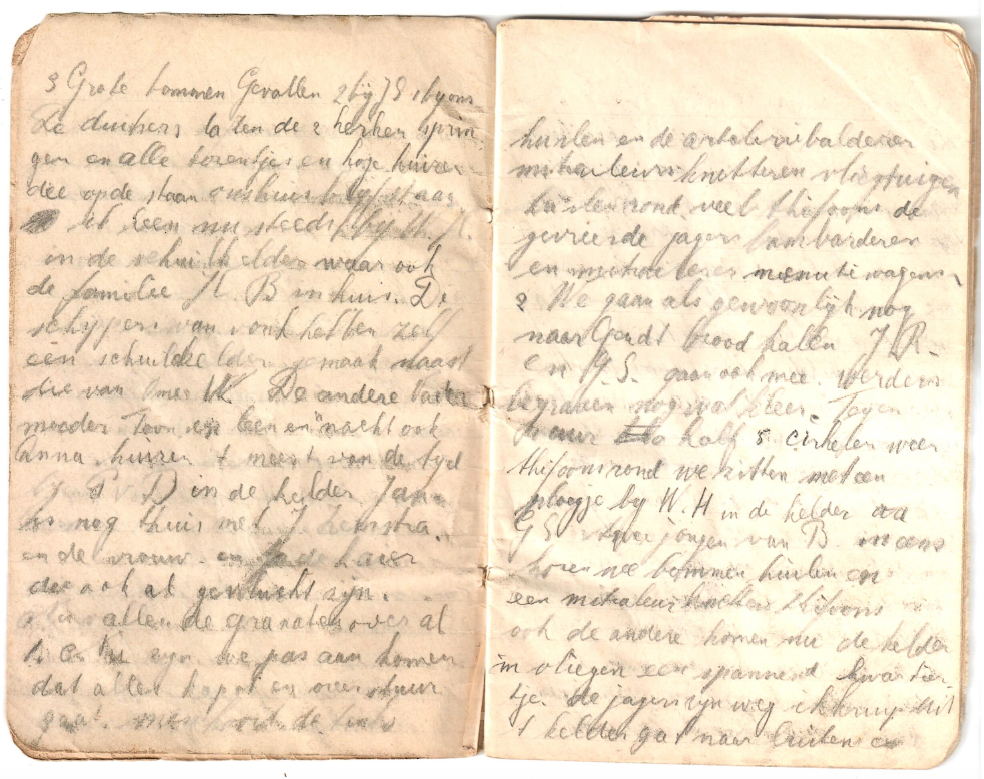 3 Grote bommen Gevallen 2 bij J S 1 bij ons
De duitsers laten de 2 kerken sprin
gen en alle torentjes en hoje huizen
die op de staan ons huis blijft staan
ik ben nu steeds bij
in de schuilkelder waar ook
de familie H. B in huis. De
schippers van vonk hebben zelf
een schuilkelder gemaak naast
die van Omer W. De andere Vader
moeder Toon en Leen en 's nachts ook
Anna. huizen 't meest van de tyd
in de kelder Jan
is nog thuis met J
en de vrouw en
die ook al gevlucht zijn.
vallen de granaten over al
zyn we pas aan komen
dat alles kapot en over stuur
gaat.
huilen en de artelerie balderen
mitraleurs knetteren vliegtuigen
rond veel thifoons de
gevreesde jagers bombarderen
en mitraileren wagens
? We gaan als gewoonlijk nog
naar Gendt brood halen J. R.
en G. S. gaan ook mee. werden
begraven nog wat Tegen
half 5 cirkelen weer
thifoons rond we zitten met een
ploegje by W. H in de kelder
G S twee jongen van B ineens
horen we bommen huilen en
een mitraleur thifoons
ook de andere komen nu de kelder
in vliegen een spannend kwartier
tje. de jagers zyn weg ik kruip uit
't kelder gat naar buiten en